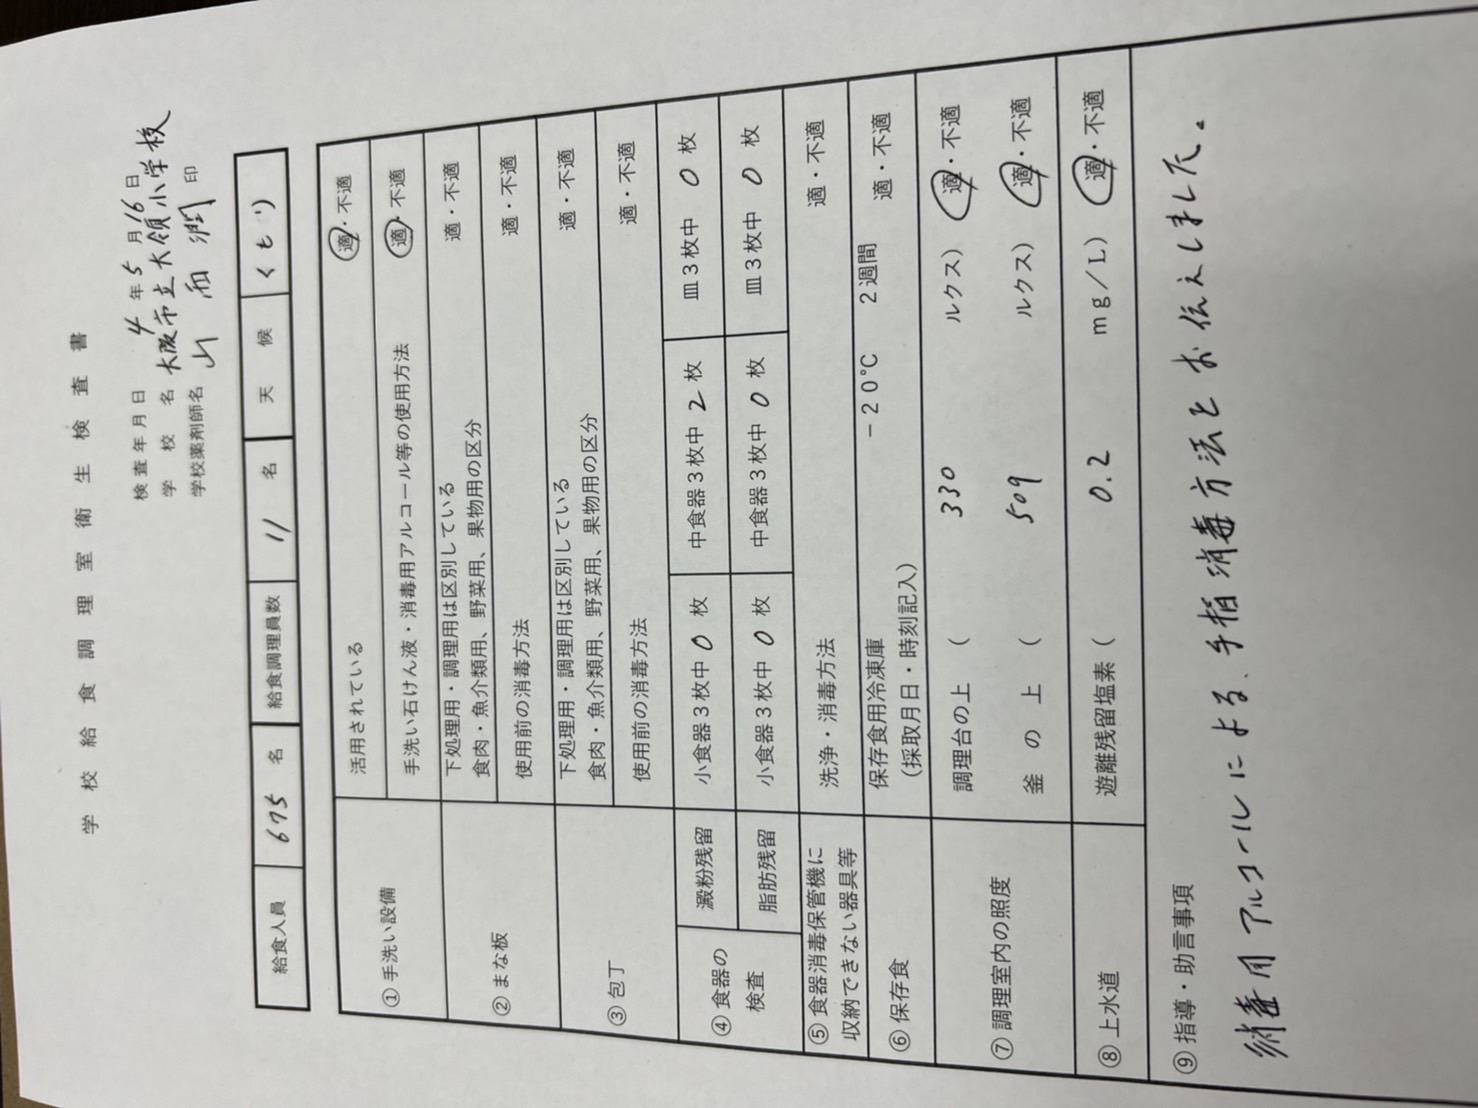 学校給食調理室衛生検査書
検査年月日 4年5月16日
学校名 大阪市立大領小学校
学校薬剤師名 山西 潤 印
給食人員 675名 給食調理員数 11名 天候 くもり
①手洗い設備 活用されている 適・不適
手洗い石けん液・消毒用アルコール等の使用方法 適・不適
②まな板 下処理用・調理用は区別している
食肉・魚介類用、野菜用、果物用の区分 適・不適
使用前の消毒方法 適・不適
③包丁 下処理用・調理用は区別している
食肉・魚介類用、野菜用、果物用の区分 適・不適
使用前の消毒方法 適・不適
④食器の検査 澱粉残留 小食器3枚中0枚 中食器3枚中2枚 皿3枚中0枚
脂肪残留 小食器3枚中0枚 中食器3枚中0枚 皿3枚中0枚
⑤食器消毒保管機に
収納できない器具等 洗浄・消毒方法 適・不適
⑥保存食 保存食用冷凍庫 -20℃ 2週間 適・不適
(採取月日・時刻記入)
⑦調理室内の照度 調理台の上 ( 330 ルクス) 適・不適
釜の上 ( 509 ルクス) 適・不適
⑧上水道 遊離残留塩素 ( 0.2 mg/L) 適・不適
⑨指導・助言事項
消毒用アルコールによる、手指消毒方法をお伝えしました。